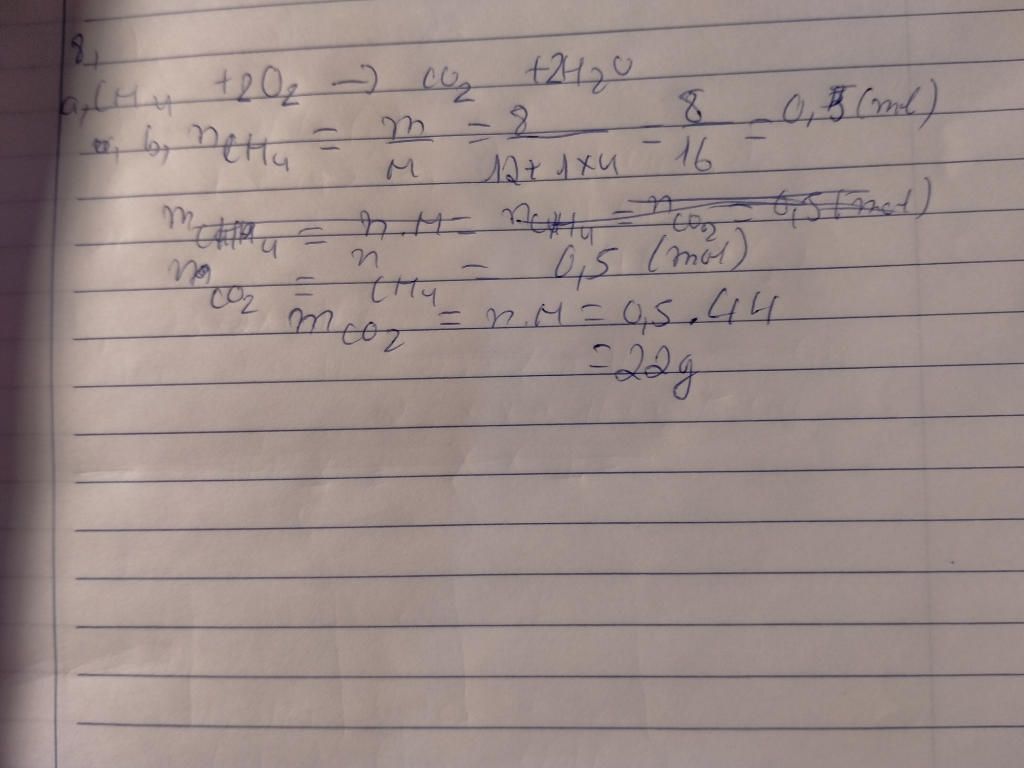 8,
a, CH4 +2O2 → CO2 +2H2O
b, nCH4 = m/M = 8/12+1×4 = 8/16 = 0,5 (mol)
mCH4 = n.M = nCH4 = nCO2 = 0,5 (mol)
nCO2 = nCH4 = 0,5 (mol)
mCO2 = n.M = 0,5.44
=22g